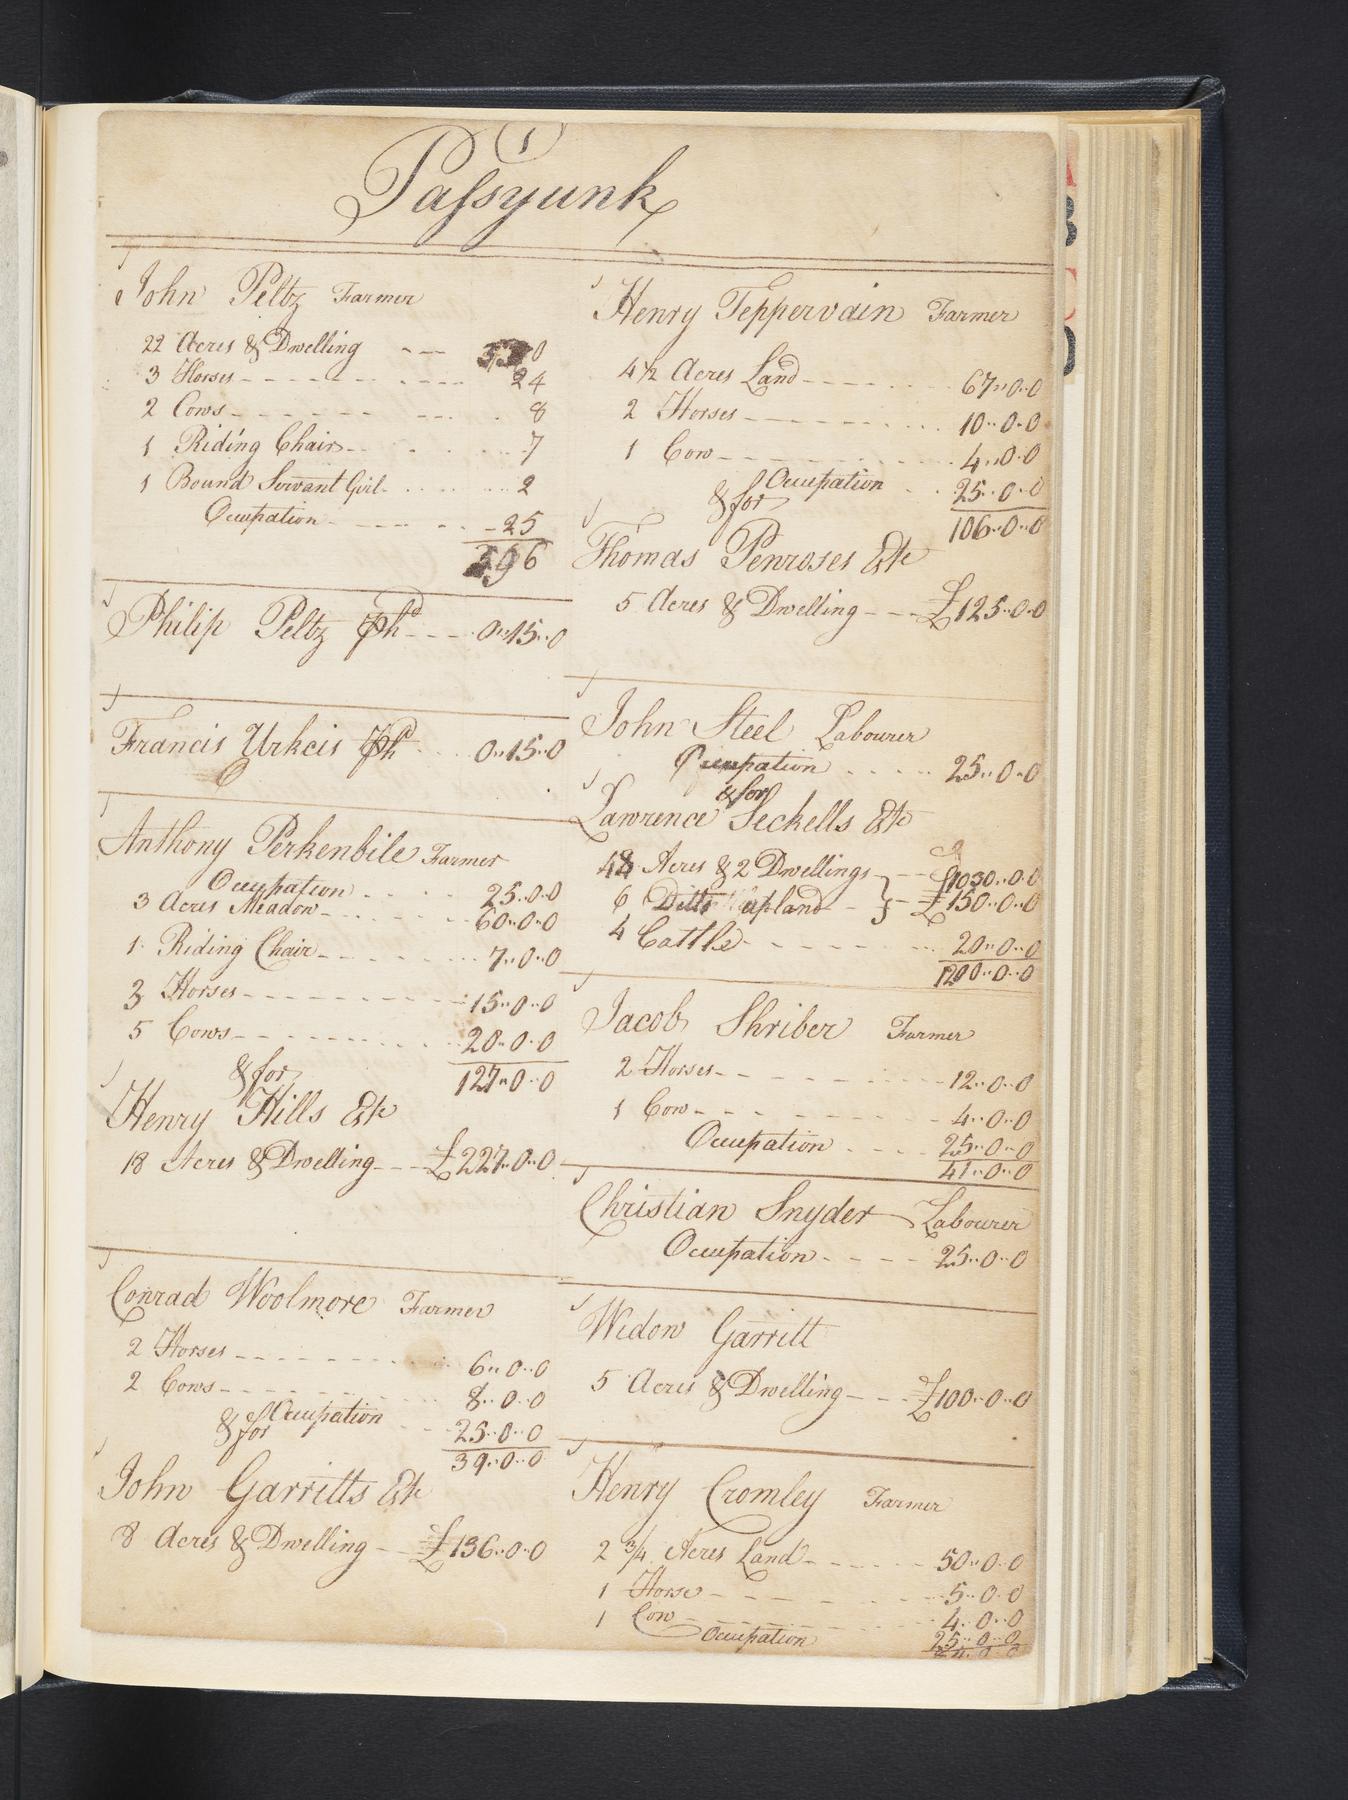 1
Passyunk
John Peltz Farmer
22 Acres & Dwelling 330
3 Horses 24
2 Cows 8
1 Riding Chair 7
1 Bound Servant Girl 2
Occupation 25
396
Philip Peltz Ph 0..15..0
Francis Urkcis Ph 0..15..0
Anthony Perkenbile Farmer
Occupation 25..0..0
3 Acres Meadow 60..0..0
1 Riding Chair 7..0..0
3 Horses 15..0..0
5 Cows 20..0..0
127..0..0
& for
Henry Hills Etc
18 Acres & Dwelling £227..0..0
Conrad Woolmore Farmer
2 Horses 6..0..0
2 Cows 8..0..0
Occupation 25..0..0
& for
39..0..0
John Garritts Etc
8 Acres & Dwelling £136..0..0
Henry Teppervain Farmer
4 1/2 Acres Land 67..0..0
2 Horses 10..0..0
1 Cow 4..0..0
Occupation 25..0..0
& for
106..0..0
Thomas Penroses Etc
5 Acres & Dwelling £125..0..0
John Steel Labourer
Occupation 25..0..0
& for
Lawrence Seckells Etc
48 Acres & 2 Dwellings £1030..0..0
6 Ditto upland £150..0..0
4 Cattle 20..0..0
1200..0..0
Jacob Shriber Farmer
2 Horses 12..0..0
1 Cow 4..0..0
Occupation 25..0..0
41..0..0
Christian Snyder Labourer
Occupation 25..0..0
Widow Garritt
5 Acres & Dwelling £100..0..0
Henry Cromley Farmer
2 3/4 Acres Land 50..0..0
1 Horse 5..0..0
1 Cow 4..0..0
Occupation 25..0..0